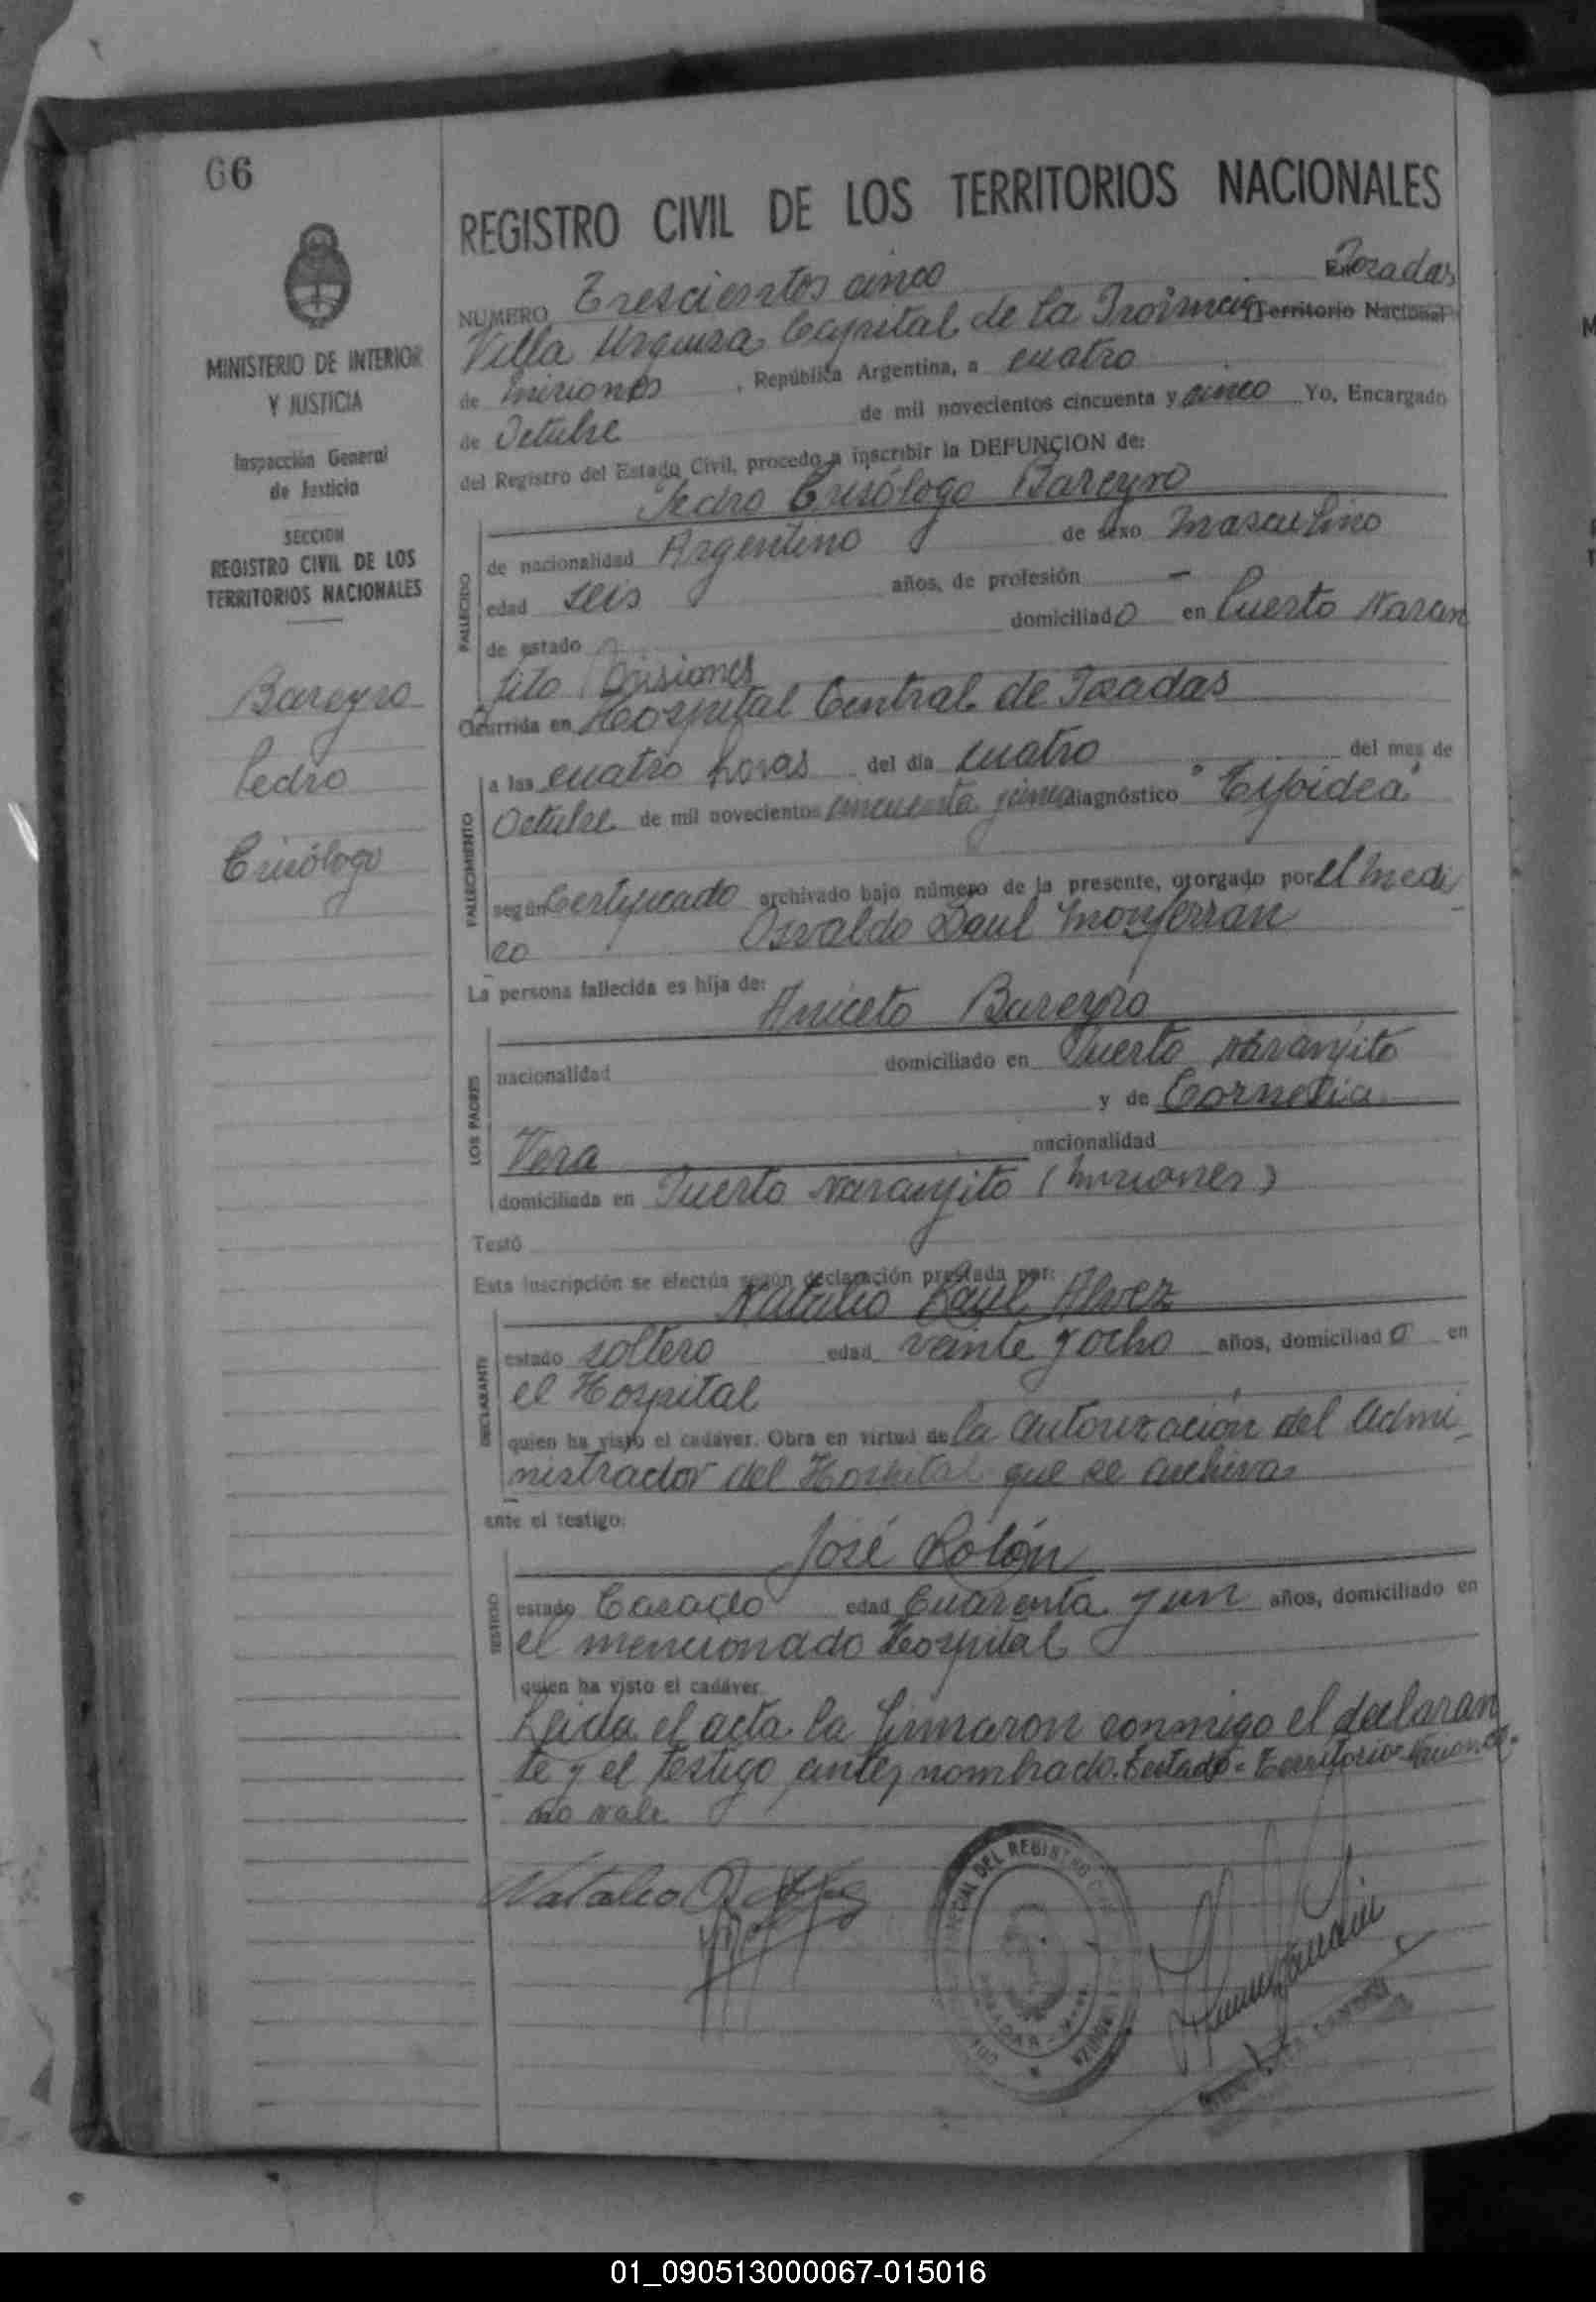 66
MINISTERIO DE INTERIOR
Y JUSTICIA
Inspección General
de Justicia
SECCION
REGISTRO CIVIL DE LOS
TERRITORIOS NACIONALES
Bareyro
Pedro
Crisólogo
REGISTRO CIVIL DE LOS TERRITORIOS NACIONALES
NUMERO Trescientos cinco En Posadas
Villa Urquiza Capital de la Provincia Territorio Nacional
de Misiones, República Argentina, a cuatro
de Octubre de mil novecientos cincuenta y cinco Yo, Encargado
del Registro del Estado Civil, procedo a inscribir la DEFUNCION de:
Pedro Crisólogo Bareyro
FALLECIDO
de nacionalidad Argentino de sexo masculino
edad seis años, de profesión —
de estado domiciliado en Puerto Naran
jito Misiones
Ocurrida en Hospital Central de Posadas
FALLECIMIENTO
a las cuatro horas del día cuatro del mes de
Octubre de mil novecientos cincuenta y cinco diagnóstico "Tifoidea"
según Certificado archivado bajo número de la presente, otorgado por el medi
co Osvaldo Raul Monferran
La persona fallecida es hija de:
Aniceto Bareyro
LOS PADRES
nacionalidad domiciliado en Puerto Naranjito
y de Cornelia
Vera nacionalidad
domiciliada en Puerto Naranjito (Misiones)
Testó
Esta inscripción se efectúa según declaración prestada por:
Natalio Raul Alvez
DECLARANTE
estado soltero edad veinte y ocho años, domiciliado en
el Hospital
quien ha visto el cadáver. Obra en virtud de la autorización del Admi
nistrador del Hospital que se archiva
ante el testigo:
José Rolón
TESTIGO
estado Casado edad Cuarenta y un años, domiciliado en
el mencionado Hospital
quien ha visto el cadáver.
Leida el acta la firmaron conmigo el declaran
te y el testigo antes nombrado. Testado = Territorio Nacional =
no vale
Natalio R. Alvez
DEL REGISTRO
URQUIZA
01_090513000067-015016